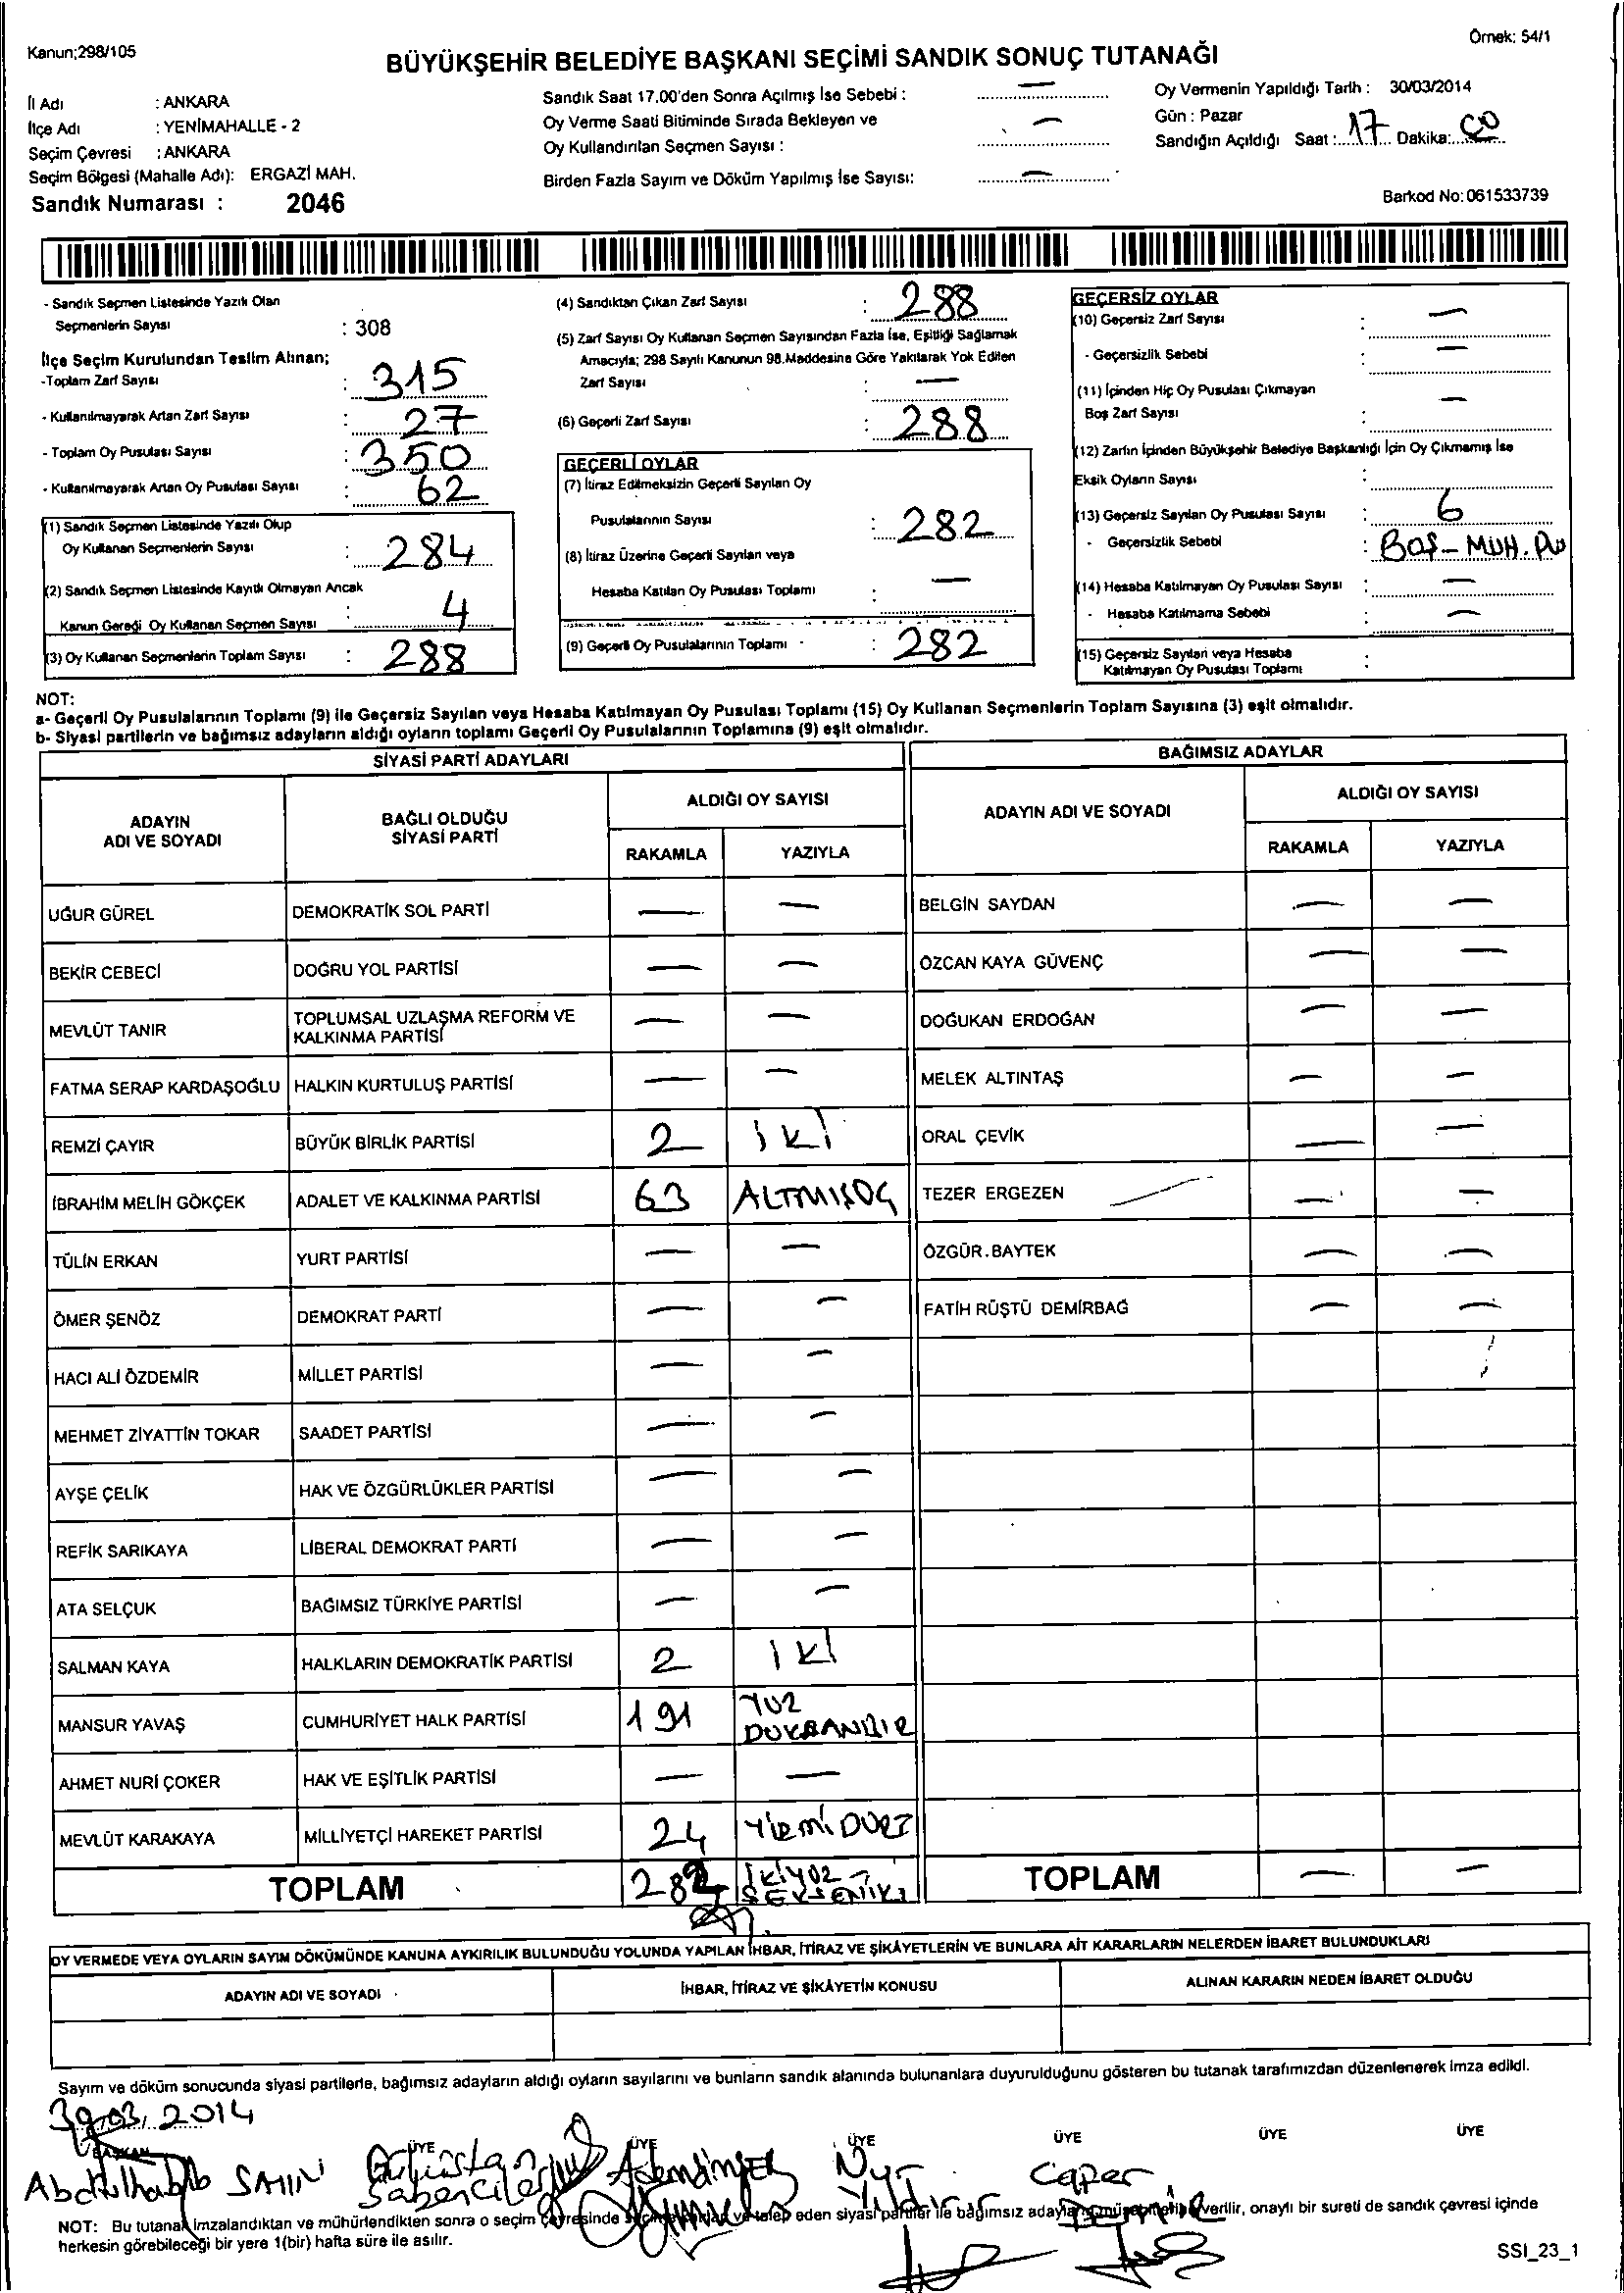 Kanun;298/105
Örnek: 54/1
BÜYÜKŞEHİR BELEDİYE BAŞKANI SEÇİMİ SANDIK SONUÇ TUTANAĞI
İl Adı : ANKARA
İlçe Adı : YENİMAHALLE - 2
Seçim Çevresi : ANKARA
Seçim Bölgesi (Mahalle Adı): ERGAZİ MAH.
Sandık Numarası : 2046
Sandık Saat 17.00'den Sonra Açılmış İse Sebebi : —
Oy Verme Saati Bitiminde Sırada Bekleyen ve
Oy Kullandırılan Seçmen Sayısı : —
Birden Fazla Sayım ve Döküm Yapılmış İse Sayısı: —
Oy Vermenin Yapıldığı Tarih : 30/03/2014
Gün : Pazar
Sandığın Açıldığı Saat : 17 Dakika: 00
Barkod No: 061533739
- Sandık Seçmen Listesinde Yazılı Olan
Seçmenlerin Sayısı : 308
İlçe Seçim Kurulundan Teslim Alınan;
-Toplam Zarf Sayısı : 315
- Kullanılmayarak Artan Zarf Sayısı : 27
- Toplam Oy Pusulası Sayısı : 350
- Kullanılmayarak Artan Oy Pusulası Sayısı : 62
(1) Sandık Seçmen Listesinde Yazılı Olup
Oy Kullanan Seçmenlerin Sayısı : 284
(2) Sandık Seçmen Listesinde Kayıtlı Olmayan Ancak
Kanun Gereği Oy Kullanan Seçmen Sayısı : 4
(3) Oy Kullanan Seçmenlerin Toplam Sayısı : 288
(4) Sandıktan Çıkan Zarf Sayısı : 288
(5) Zarf Sayısı Oy Kullanan Seçmen Sayısından Fazla İse, Eşitliği Sağlamak
Amacıyla; 298 Sayılı Kanunun 98.Maddesine Göre Yakılarak Yok Edilen
Zarf Sayısı : —
(6) Geçerli Zarf Sayısı : 288
GEÇERLİ OYLAR
(7) İtiraz Edilmeksizin Geçerli Sayılan Oy
Pusulalarının Sayısı : 282
(8) İtiraz Üzerine Geçerli Sayılan veya
Hesaba Katılan Oy Pusulası Toplamı : —
(9) Geçerli Oy Pusulalarının Toplamı : 282
GEÇERSİZ OYLAR
(10) Geçersiz Zarf Sayısı : —
- Geçersizlik Sebebi : —
(11) İçinden Hiç Oy Pusulası Çıkmayan
Boş Zarf Sayısı : —
(12) Zarfın İçinden Büyükşehir Belediye Başkanlığı İçin Oy Çıkmamış İse
Eksik Oyların Sayısı :
(13) Geçersiz Sayılan Oy Pusulası Sayısı : 6
- Geçersizlik Sebebi : BOŞ - MUH.
(14) Hesaba Katılmayan Oy Pusulası Sayısı : —
- Hesaba Katılmama Sebebi : —
(15) Geçersiz Sayılan veya Hesaba
Katılmayan Oy Pusulası Toplamı :
NOT:
a- Geçerli Oy Pusulalarının Toplamı (9) ile Geçersiz Sayılan veya Hesaba Katılmayan Oy Pusulası Toplamı (15) Oy Kullanan Seçmenlerin Toplam Sayısına (3) eşit olmalıdır.
b- Siyasi partilerin ve bağımsız adayların aldığı oyların toplamı Geçerli Oy Pusulalarının Toplamına (9) eşit olmalıdır.
SİYASİ PARTİ ADAYLARI
ADAYIN
ADI VE SOYADI
BAĞLI OLDUĞU
SİYASİ PARTİ
ALDIĞI OY SAYISI
RAKAMLA YAZIYLA
UĞUR GÜREL DEMOKRATİK SOL PARTİ — —
BEKİR CEBECİ DOĞRU YOL PARTİSİ — —
MEVLÜT TANIR TOPLUMSAL UZLAŞMA REFORM VE
KALKINMA PARTİSİ — —
FATMA SERAP KARDAŞOĞLU HALKIN KURTULUŞ PARTİSİ — —
REMZİ ÇAYIR BÜYÜK BİRLİK PARTİSİ 2 İKİ
İBRAHİM MELİH GÖKÇEK ADALET VE KALKINMA PARTİSİ 63 ALTMIŞÜÇ
TÜLİN ERKAN YURT PARTİSİ — —
ÖMER ŞENÖZ DEMOKRAT PARTİ — —
HACI ALİ ÖZDEMİR MİLLET PARTİSİ — —
MEHMET ZİYATTİN TOKAR SAADET PARTİSİ — —
AYŞE ÇELİK HAK VE ÖZGÜRLÜKLER PARTİSİ — —
REFİK SARIKAYA LİBERAL DEMOKRAT PARTİ — —
ATA SELÇUK BAĞIMSIZ TÜRKİYE PARTİSİ — —
SALMAN KAYA HALKLARIN DEMOKRATİK PARTİSİ 2 İKİ
MANSUR YAVAŞ CUMHURİYET HALK PARTİSİ 191 YÜZ
DOKSANBİR
AHMET NURİ ÇOKER HAK VE EŞİTLİK PARTİSİ — —
MEVLÜT KARAKAYA MİLLİYETÇİ HAREKET PARTİSİ 24 YİRMİDÖRT
TOPLAM 282 İKİYÜZ
SEKSENİKİ
BAĞIMSIZ ADAYLAR
ADAYIN ADI VE SOYADI
ALDIĞI OY SAYISI
RAKAMLA YAZIYLA
BELGİN SAYDAN — —
ÖZCAN KAYA GÜVENÇ — —
DOĞUKAN ERDOĞAN — —
MELEK ALTINTAŞ — —
ORAL ÇEVİK — —
TEZER ERGEZEN — —
ÖZGÜR.BAYTEK — —
FATİH RÜŞTÜ DEMİRBAĞ — —
TOPLAM — —
OY VERMEDE VEYA OYLARIN SAYIM DÖKÜMÜNDE KANUNA AYKIRILIK BULUNDUĞU YOLUNDA YAPILAN İHBAR, İTİRAZ VE ŞİKAYETLERİN VE BUNLARA AİT KARARLARIN NELERDEN İBARET BULUNDUKLARI
ADAYIN ADI VE SOYADI İHBAR, İTİRAZ VE ŞİKÂYETİN KONUSU ALINAN KARARIN NEDEN İBARET OLDUĞU
Sayım ve döküm sonucunda siyasi partilerle, bağımsız adayların aldığı oyların sayılarını ve bunların sandık alanında bulunanlara duyurulduğunu gösteren bu tutanak tarafımızdan düzenlenerek imza edildi.
30.03.2014
BAŞKAN ÜYE ÜYE ÜYE ÜYE ÜYE ÜYE
Abdulhabib ŞAHİN Gülüstan Nur Caper
Yıldırır DEMİR
NOT: Bu tutanak imzalandıktan ve mühürlendikten sonra o seçim çevresinde ve talep eden siyasi partiler ile bağımsız aday verilir, onaylı bir sureti de sandık çevresi içinde
herkesin görebileceği bir yere 1(bir) hafta süre ile asılır.
SSI_23_1